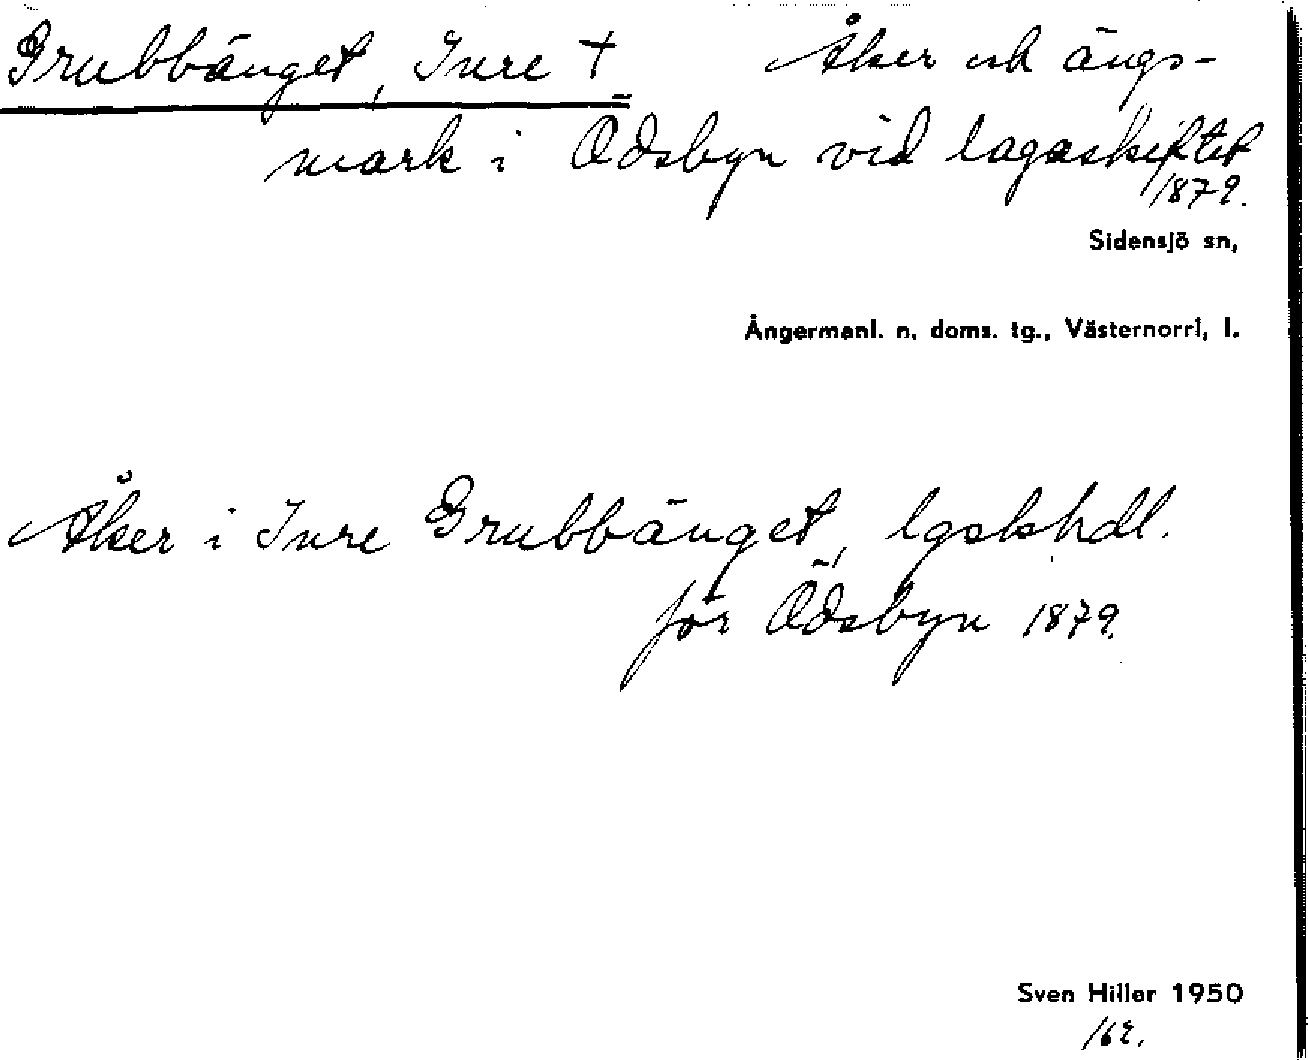 Grubbänget, Inre + Åker och ängs-
mark i Ödsbyn vid lagaskiftet
1879.
Sidensjö sn,
Ångermanl. n. doms. tg., Västernorrl. l.
Åker i Inre Grubbänget, lgskhdl.
för Ödsbyn 1879.
Sven Hiller 1950